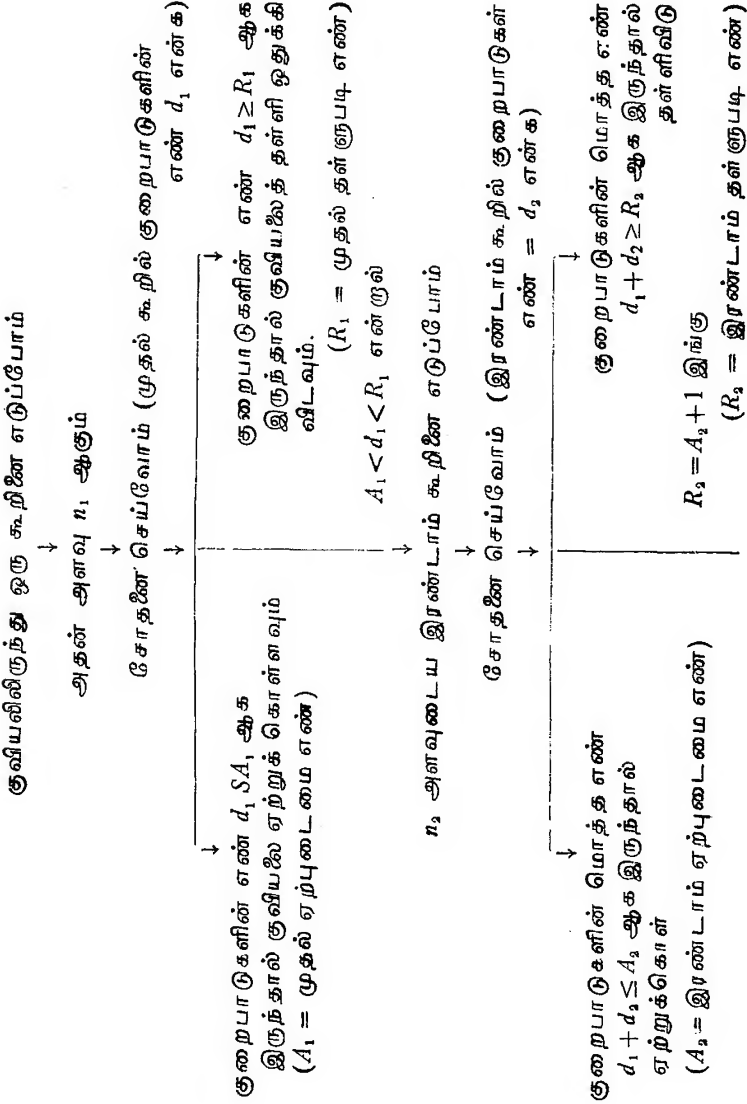 குவியலிலிருந்து ஒரு கூறினை எடுப்போம்
↓
அதன் அளவு n₁ ஆகும்
↓
சோதனை செய்வோம் (முதல் கூறில் குறைபாடுகளின்
எண் d₁ என்க)
↓
குறைபாடுகளின் எண் d₁ SA₁ ஆக
இருந்தால் குவியலை ஏற்றுக் கொள்ளவும்
(A₁ = முதல் ஏற்புடைமை எண்)
குறைபாடுகளின் எண் d₁ ≥ R₁ ஆக
இருந்தால் குவியலைத் தள்ளி ஒதுக்கி
விடவும்.
(R₁ = முதல் தள்ளுபடி எண்)
A₁ < d₁ < R₁ என்றால்
↓
n₂ அளவுடைய இரண்டாம் கூறினை எடுப்போம்
↓
சோதனை செய்வோம் (இரண்டாம் கூறில் குறைபாடுகள்
எண் = d₂ என்க)
↓
குறைபாடுகளின் மொத்த எண்
d₁ + d₂ ≤ A₂ ஆக இருந்தால்
ஏற்றுக்கொள்
(A₂ = இரண்டாம் ஏற்புடைமை எண்)
குறைபாடுகளின் மொத்த எண்
d₁ + d₂ ≥ R₂ ஆக இருந்தால்
தள்ளிவிடு
R₂ = A₂ + 1 இங்கு
(R₂ = இரண்டாம் தள்ளுபடி எண்)